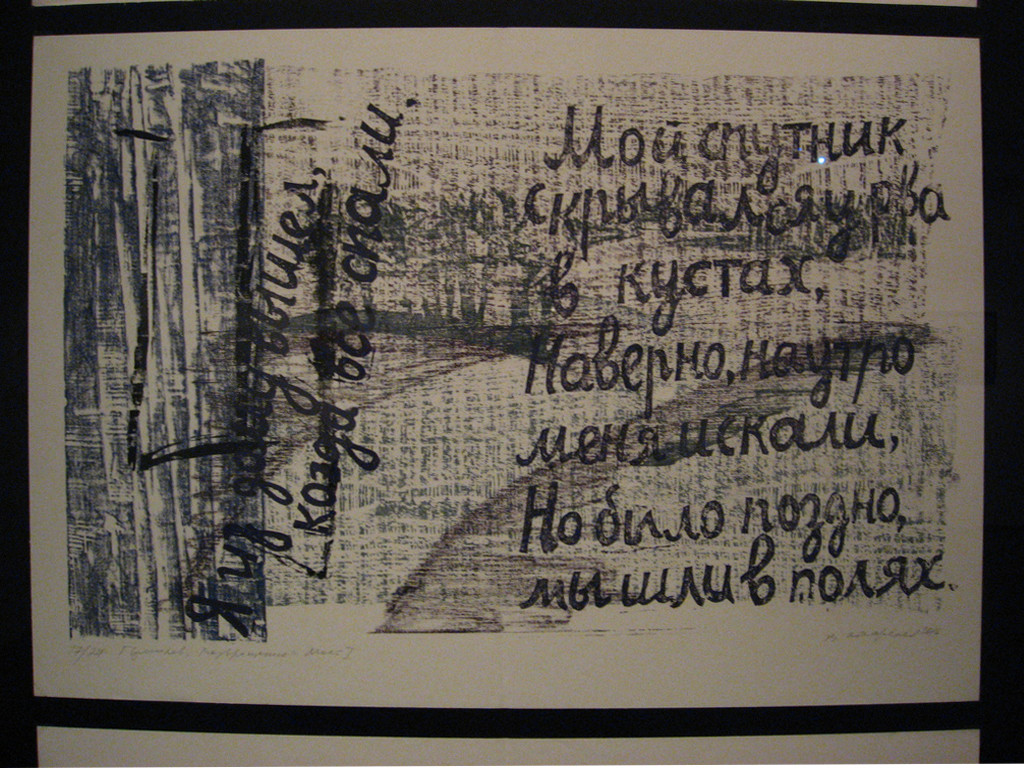 Я из дому вышел,
когда все спали.
Мой спутник
скрывался у рва
в кустах,
Наверно, наутро
меня искали,
Но было поздно,
мы шли в полях.